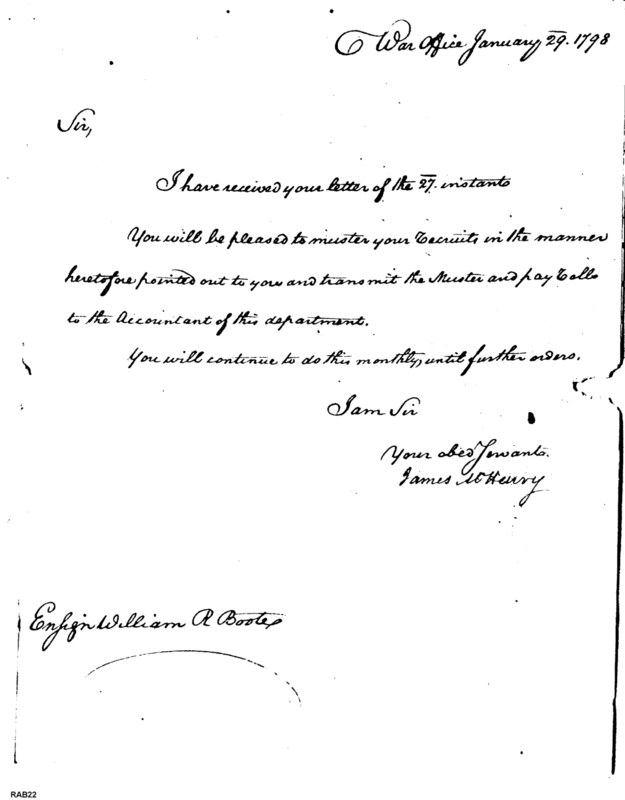 War Office January 29. 1798
Sir,
I have received your letter of the 27. instant
You will be pleased to muster your Recruits in the manner
heretofore pointed out to you and transmit the Muster and pay Rolls
to the Accountant of this department.
You will continue to do this monthly, until further orders.
I am Sir
Your obed Servant.
James McHenry
Ensign William R Boote
RAB22